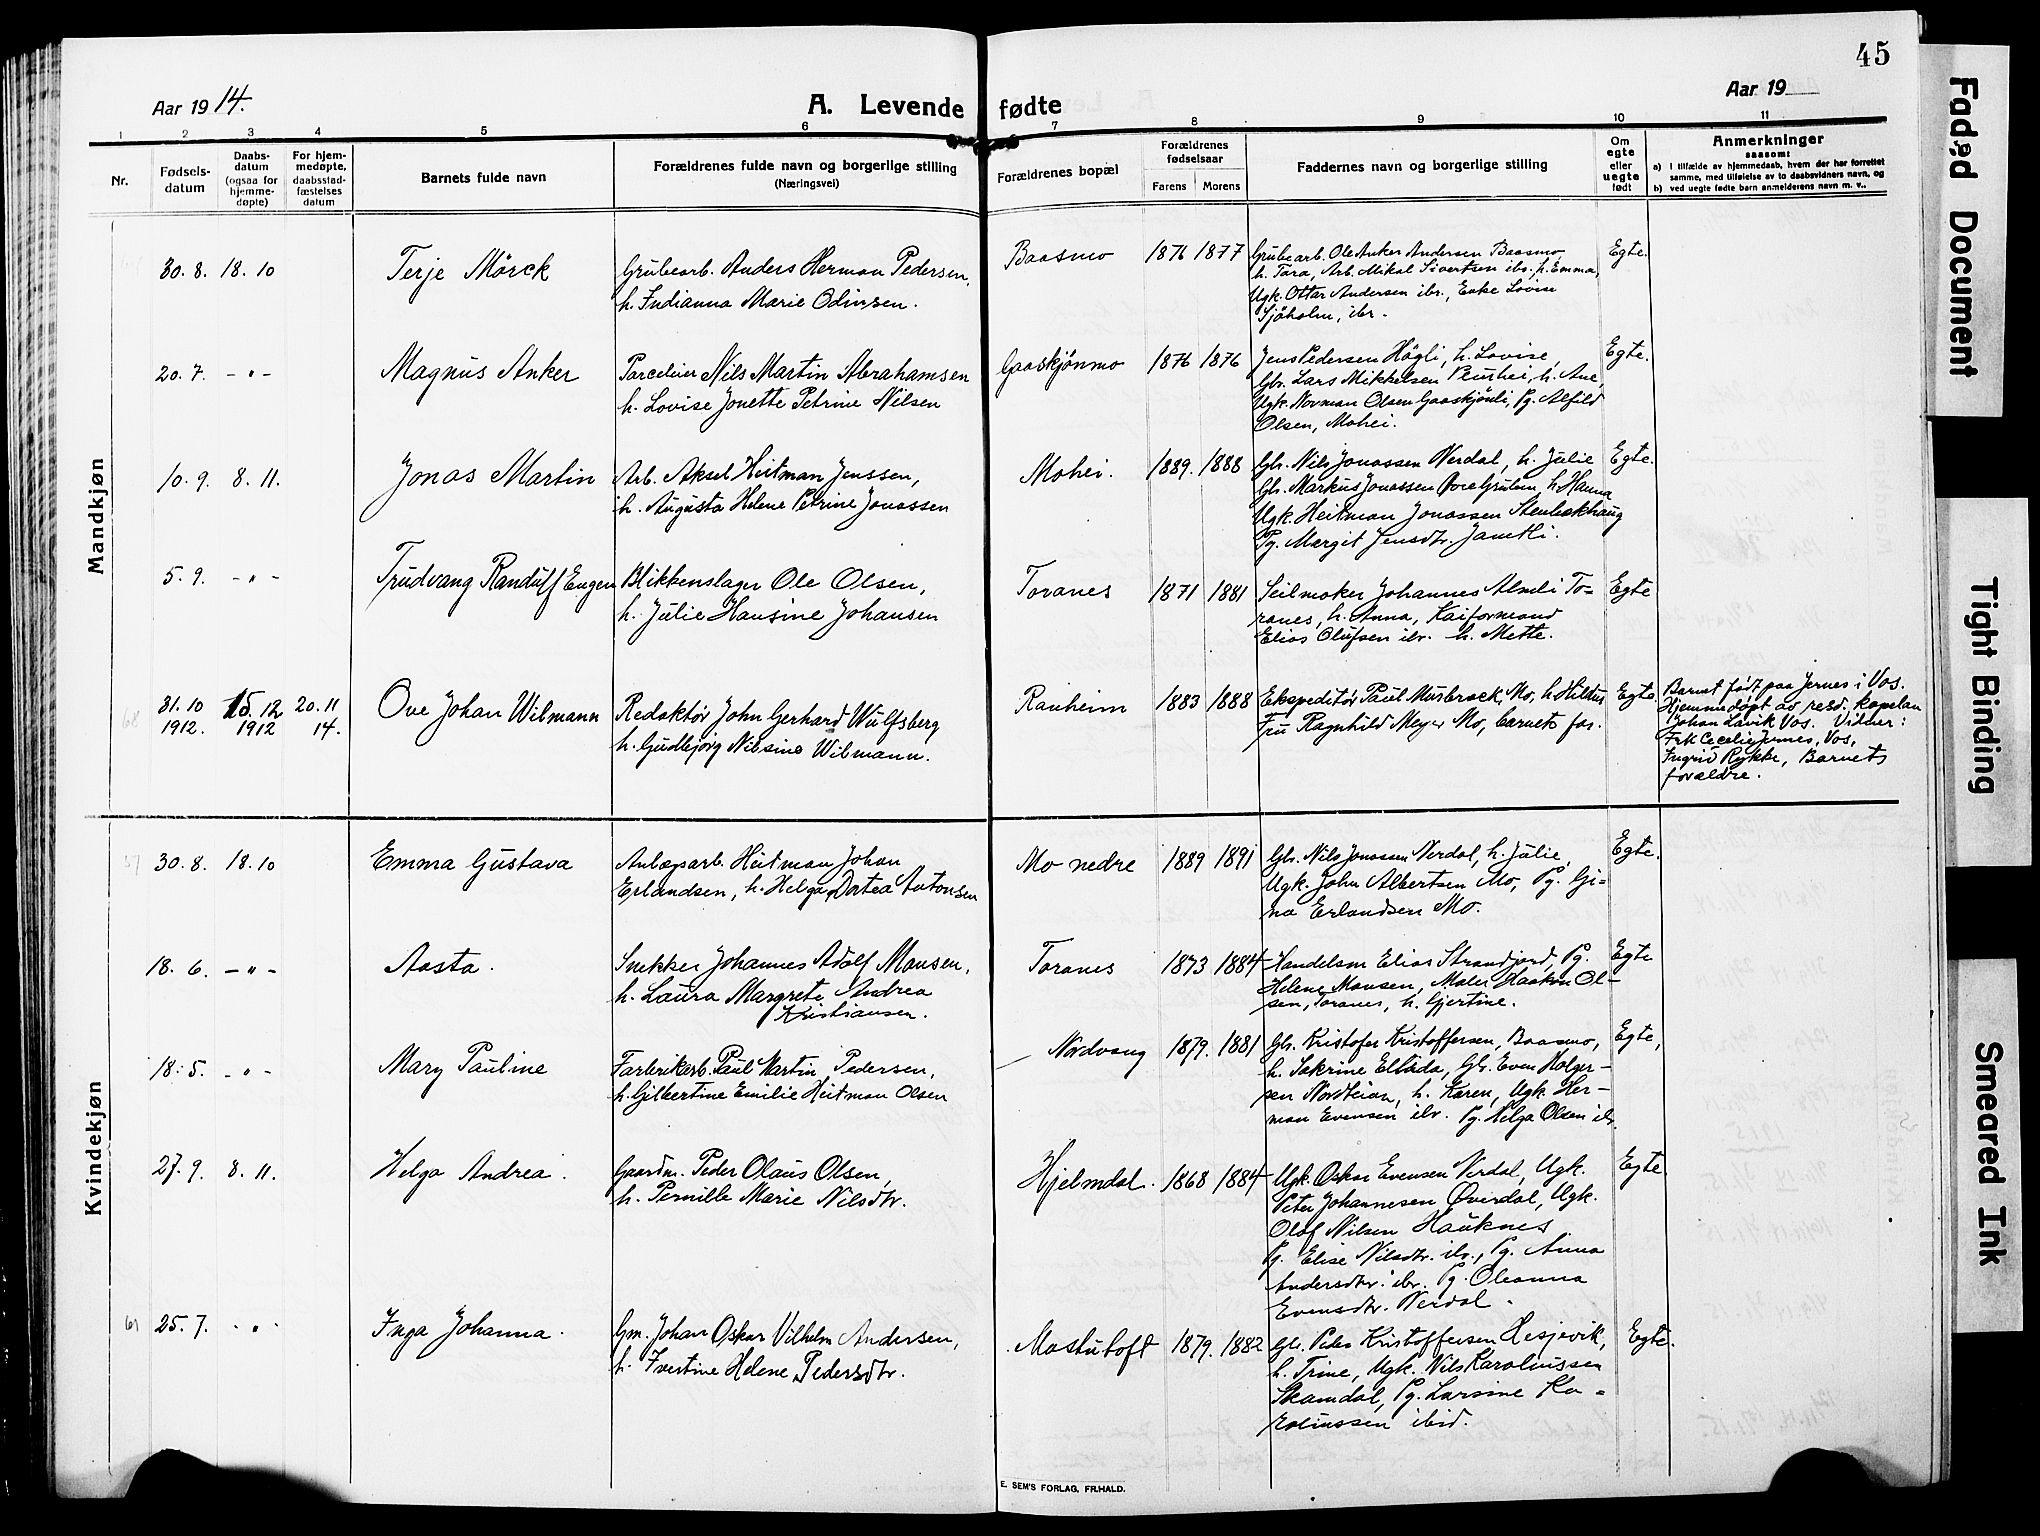 45
Aar 1914.
A. Levende fødte
Aar 19
1 2 3 4 5 6 7 8 9 10 11
Nr.
Fødsels-
datum
Daabs-
datum
(ogsaa for
hjemme-
døpte)
For hjem-
medøpte,
daabsstad-
fæstelses
datum
Barnets fulde navn
Forældrenes fulde navn og borgerlige stilling
(Næringsvei)
Forældrenes bopæl
Forældrenes
fødselsaar
Farens Morens
Faddernes navn og borgerlige stilling
Om
egte
eller
uegte
født
Anmerkninger
saasom:
a) I tilfælde av hjemmedaab, hvem der har forrettet
samme, med tilføielse av to daabsvidners navn, og
b) ved uegte fødte barn anmelderens navn m. v..
Mandkjøn
30. 8. 18. 10
Terje Mörck
Grubearb. Anders Herman Pedersen,
h. Indianna Marie Odinsen.
Baasmo
1876 1877
Grubearb. Ole Anker Andersen Baasmo
h. Tara, Arb. Mikal Sivertsen ibr. h. Emma,
Ugk. Ottar Andersen ibr., Enke Lovise
Sjöholm, ibr.
Egte.
20. 7. - " -
Magnus Anker
Parceleier Nils Martin Abrahamsen
h. Lovise Jonette Petrine Nilsen
Gaaskjønmo
1876 1876
Jens Pedersen Högli, h. Lovise,
Gbr. Lars Mikkelsen h. Ane,
Ugk. Norman Olsen Gaaskjönli, Pg. Alfild
Olsen, Mohei.
Egte.
10. 9. 8. 11.
Jonas Martin
Arb. Aksel Heitman Jenssen,
h. Augusta Helene Petrine Jonassen
Mohei.
1889. 1888
Gbr. Nils Jonassen Nerdal, h. Julie
Gbr. Markus Jonassen h. Hanna
Ugk. Heitman Jonassen Stenbækhaug
Pg. Margit Jensdtr. Jamtli.
Egte.
5. 9. - " -
Trudvang Randulf Eugen
Blikkenslager Ole Olsen,
h. Julie Hansine Johansen
Toranes
1871 1881
Seilmaker Johannes Almli To-
ranes, h. Anna, Kaiformand
Elias Olufsen ibr. h. Mette.
Egte
68
31. 10
1912.
15. 12
1912
20. 11
14.
Ove Johan Wilmann
Redaktör John Gerhard Wulfsberg
h. Gudbjörg Nilsine Wilmann.
Ranheim
1883 1888
Ekspeditör Paul Musbræk, Mo, h. Hildur
Fru Ragnhild Meyer Mo, barnets far.
Egte.
Barnet født paa Jernes i Vos.
Hjemmedöpt av resd. kapelan
Johan Lavik Vos. Vidner:
Frk Cecelie Jernes, Vos,
Ingrid Rykke, Barnets
forældre.
Kvindekjøn
57
30. 8. 18. 10
Emma Gustava
Anlægsarb. Heitman Johan
Erlandsen, h. Helga Dortea Antonsen
Mo nedre
1889 1891
Gbr. Nils Jonassen Nerdal, h. Julie,
Ugk. John Albertsen Mo, Pg. Gi=
na Erlandsen Mo.
Egte.
18. 6. - " -
Aasta.
Snekker Johannes Adolf Monsen,
h. Laura Margrete Andrea
Kristiansen.
Toranes
1873 1884
Handelsm Elias Strandjord, Pg.
Helene Monsen, Maler Haakon Ol-
sen, Toranes, h. Gjertine.
Egte
18. 5. - " -
Mary Pauline
Farbrikarb. Paul Martin Pedersen,
h. Gjilbertine Emilie Heitman Olsen
Nordvang
1879. 1881
Gbr. Kristofer Kristoffersen, Baasmo,
h. Sakrine Elbida, Gbr. Even Holger-
sen Nordheian, h. Karen, Ugk. Her-
man Evensen ibr. Pg. Helga Olsen ibr.
Egte,
27. 9. 8. 11.
Helga Andrea.
Gaardm. Peder Olaus Olsen,
h. Pernille Marie Nilsdtr.
Hjelmdal.
1868 1884
Ugk. Oskar Evensen Nerdal, Ugk.
Peter Johannesen Øverdal, Ugk.
Olaf Nilsen Hauknes
Pg. Elise Nilsdtr. ibr., Pg. Anna
Andersdtr. ibr. Pg. Oleanna
Evensdtr. Nerdal.
Egte.
61
25. 7. - " -
Inga Johanna.
Gm. Johan Oskar Vilhelm Andersen,
h. Ivertine Helene Pedersdtr.
Mostutoft
1879. 1882
Gbr. Peder Kristoffersen Hesjevik,
h. Trine, Ugk. Nils Karoliussen
Skamdal, Pg. Larsine Ka=
roliussen ibid.
Egte.
E. SEM'S FORLAG, FR.HALD.
Faded Document
Tight Binding
Smeared Ink